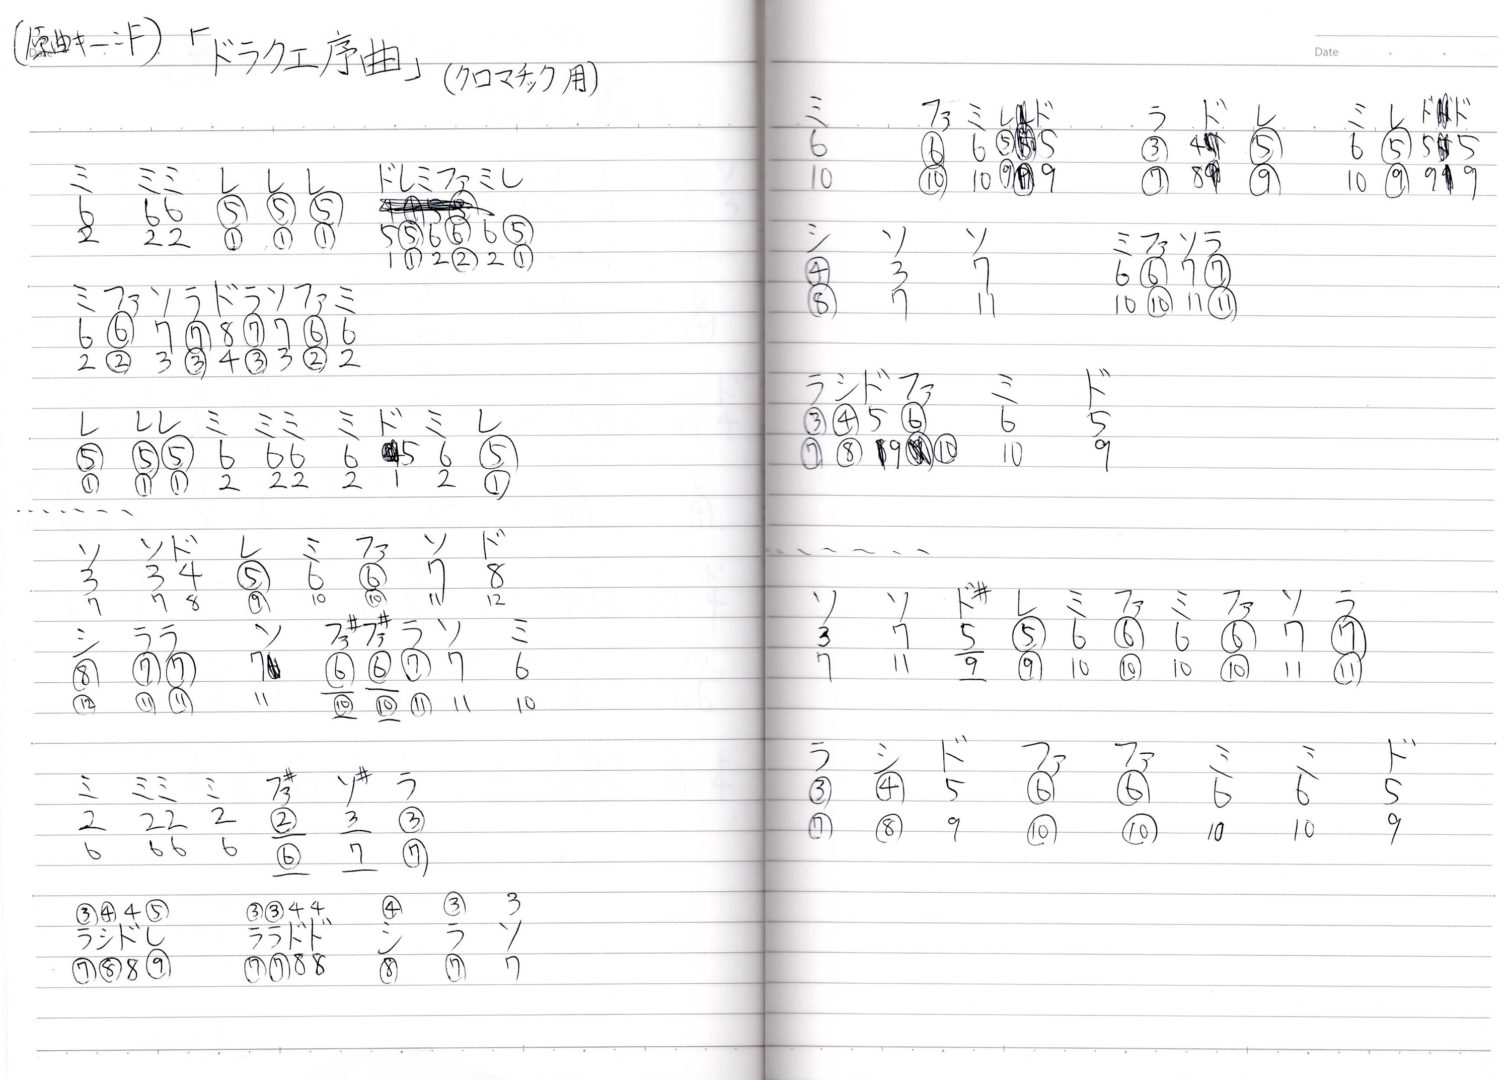 (原曲キード)「ドラクエ序曲」(クロマチック用)
ミ ミミ レ レ レ ドレミファミレ
6 66 ⑤ ⑤ ⑤
2 22 ① ① ① 5⑤6⑥6⑤
1①2②2①
ミファソラドラソファミ
6⑥7⑦8⑦7⑥6
2②3③4③3②2
レ レレ ミ ミミ ミ ド ミ レ
⑤ ⑤⑤ 6 66 6 5 6 ⑤
① ①① 2 22 2 1 2 ①
ソ ソド レ ミ ファ ソ ド
3 34 ⑤ 6 ⑥ 7 8
7 78 ⑨ 10 ⑩ 11 12
シ ララ ソ ファ# ファ# ラ ソ ミ
⑧ ⑦⑦ 7 ⑥ ⑥ ⑦ 7 6
⑫ ⑪⑪ 11 ⑩ ⑩ ⑪ 11 10
ミ ミミ ミ ファ# ソ# ラ
2 22 2 ② 3 ③
6 66 6 ⑥ 7 ⑦
③④4⑤ ③③44 ④ ③ 3
ラシドレ ララドド シ ラ ソ
⑦⑧8⑨ ⑦⑦88 ⑧ ⑦ 7
Date
ミ ファ ミ レ ド ラ ド レ ミ レ ド ド
6 ⑥ 6 ⑤ 5 ③ 4 ⑤ 6 ⑤ 5 5
10 ⑩ 10 ⑨ 9 ⑦ 8 ⑨ 10 ⑨ 9 9
シ ソ ソ ミファソラ
④ 3 7 6⑥7⑦
⑧ 7 11 10⑩11⑪
ラシドファ ミ ド
③④5⑥ 6 5
⑦⑧9⑩ 10 9
ソ ソ ド# レ ミ ファ ミ ファ ソ ラ
3 7 5 ⑤ 6 ⑥ 6 ⑥ 7 ⑦
7 11 9 ⑨ 10 ⑩ 10 ⑩ 11 ⑪
ラ シ ド ファ ファ ミ ミ ド
③ ④ 5 ⑥ ⑥ 6 6 5
⑦ ⑧ 9 ⑩ ⑩ 10 10 9